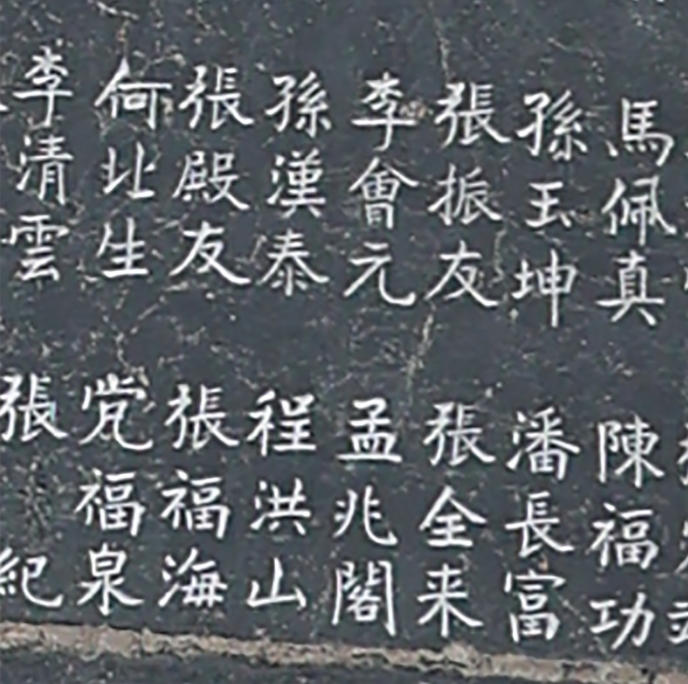 馬佩真
孫玉坤
張振友
李會元
孫漢泰
張殿友
何北生
李清雲
陳福功
潘長富
張全来
孟兆閣
程洪山
張福海
党福泉
張紀